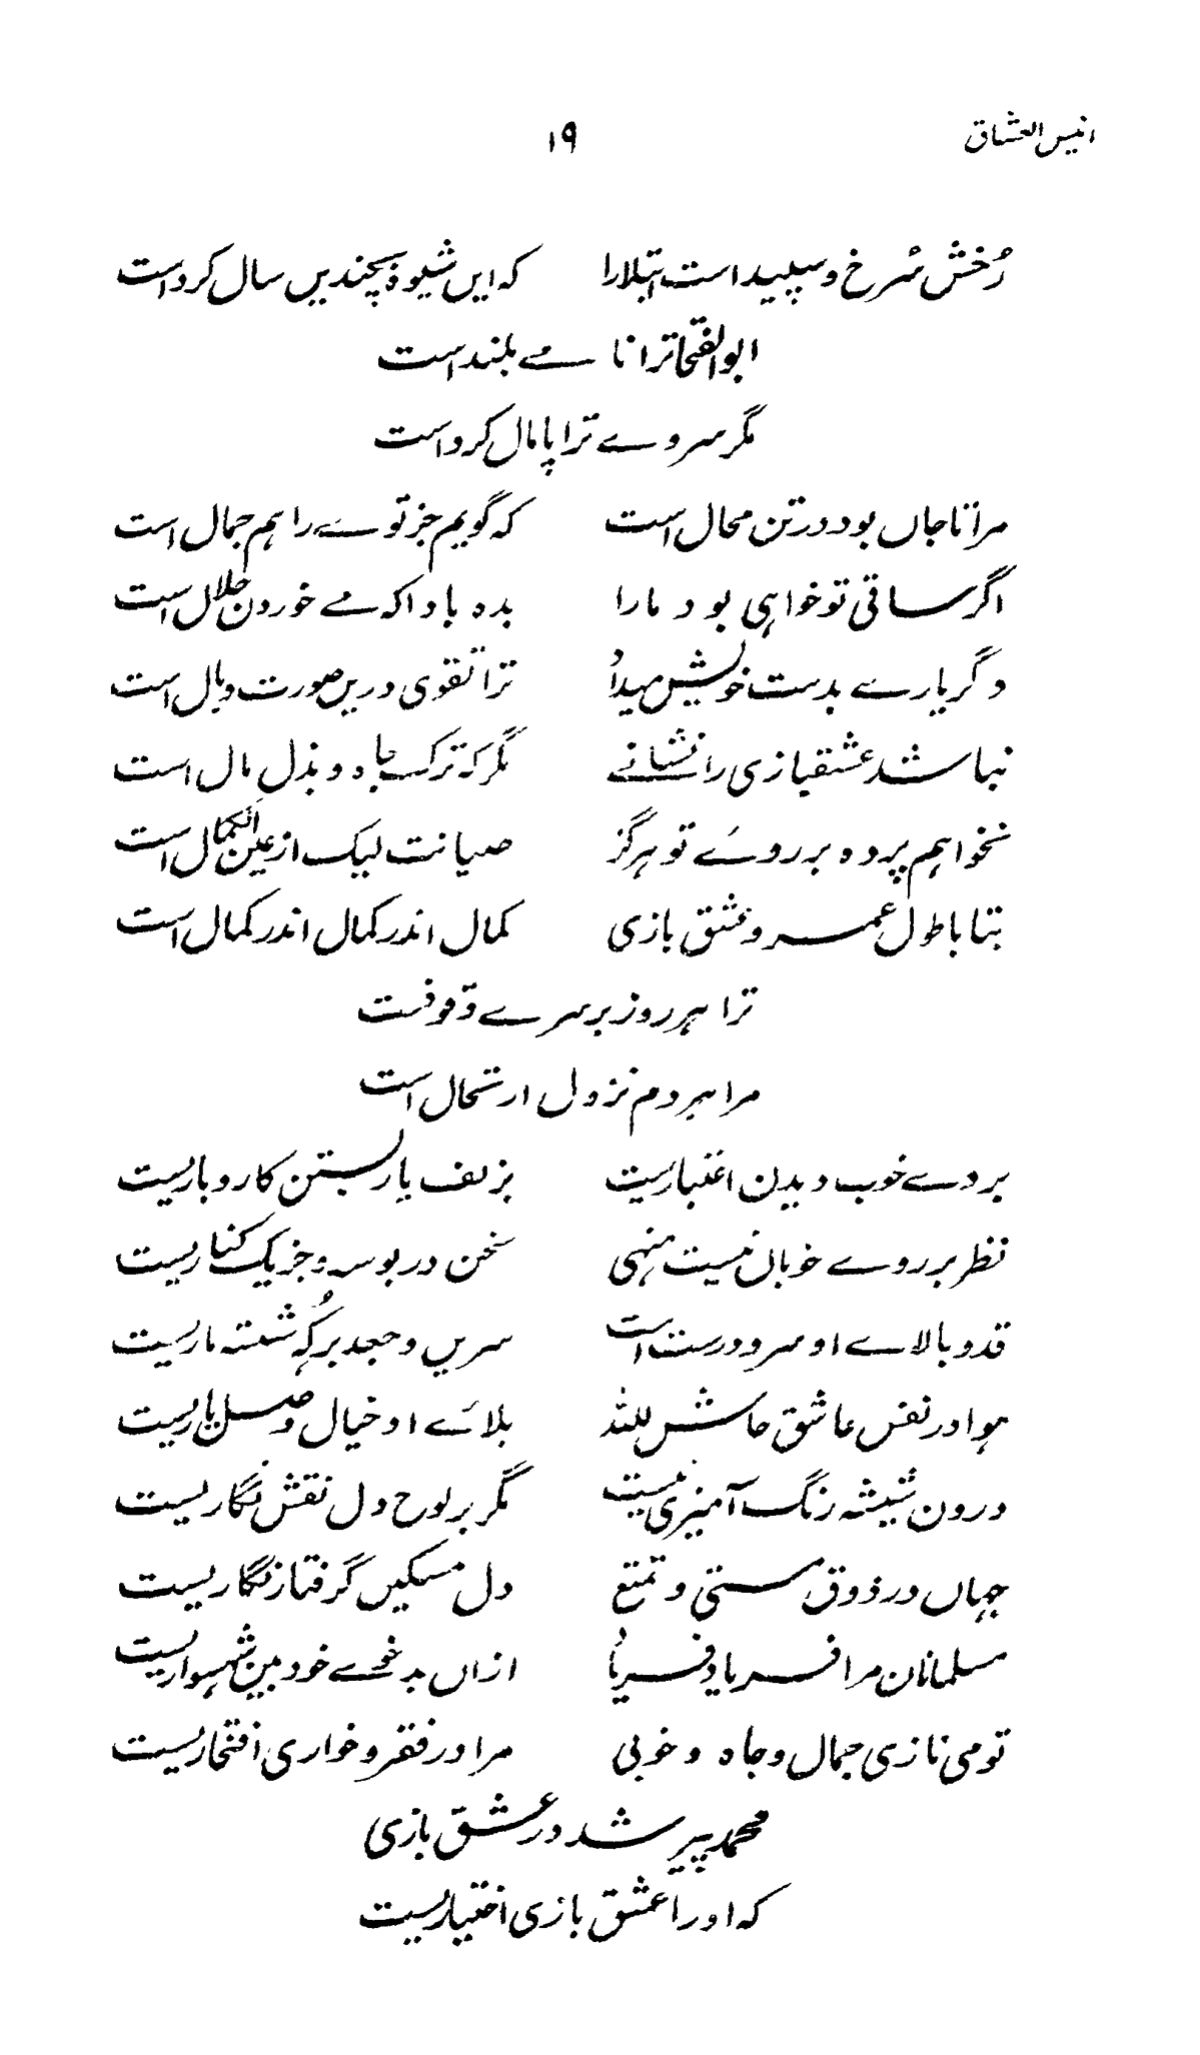 انیس العشاق ۱۹
رُخش سُرخ و سپید است ابتلا را که ایں شیوهٔ بچندیں سال کرد است
ابوالفتحا ترا نامے بلند است
مگر سروے ترا پامال کرد است
مرا تا جاں بود در تن محال است که گویم جز توے را ہم جمال است
اگر ساقی تو خواہی بود ما را بده بادا که مے خوردن حلال است
دگر یارے بدست خویش میداُ ترا تقوی دریں صورت وبال است
نباشد عشقبازی را نشانے مگر که ترک جاه و بذل مال است
نخواہم پرده بر روئے تو ہرگز صیانت لیک از عین الکمال است
بتا با طول عمر و عشق بازی کمال اندر کمال اندر کمال است
ترا ہر روز بر سرے وقوفست
مرا ہردم نزول ارتحال است
بردے خوب دیدن اعتباریست بزلف یار بستن کاروباریست
نظر بر روے خوباں نیست منہی سخن در بوسه و جز یک کناریست
قد و بالاے او سرو درست است سریں و جعد بر کُہ شُسته ماریست
ہوا در نفس عاشق حاش للله بلائے او خیال وصل یاریست
درون شیشه رنگ آمیزی نیست مگر بر لوح دل نقش نگاریست
جہاں در ذوق مستی و تمتع دل مسکیں گرفتار نگاریست
مسلمانان مرا فریاد فریاُ ازاں بدخوے خود بیں شہسواریست
تو می نازی جمال و جاه و خوبی مرا در فقر و خواری افتخاریست
محمد پیر شد در عشق بازی
که او را عشق بازی اختیاریست